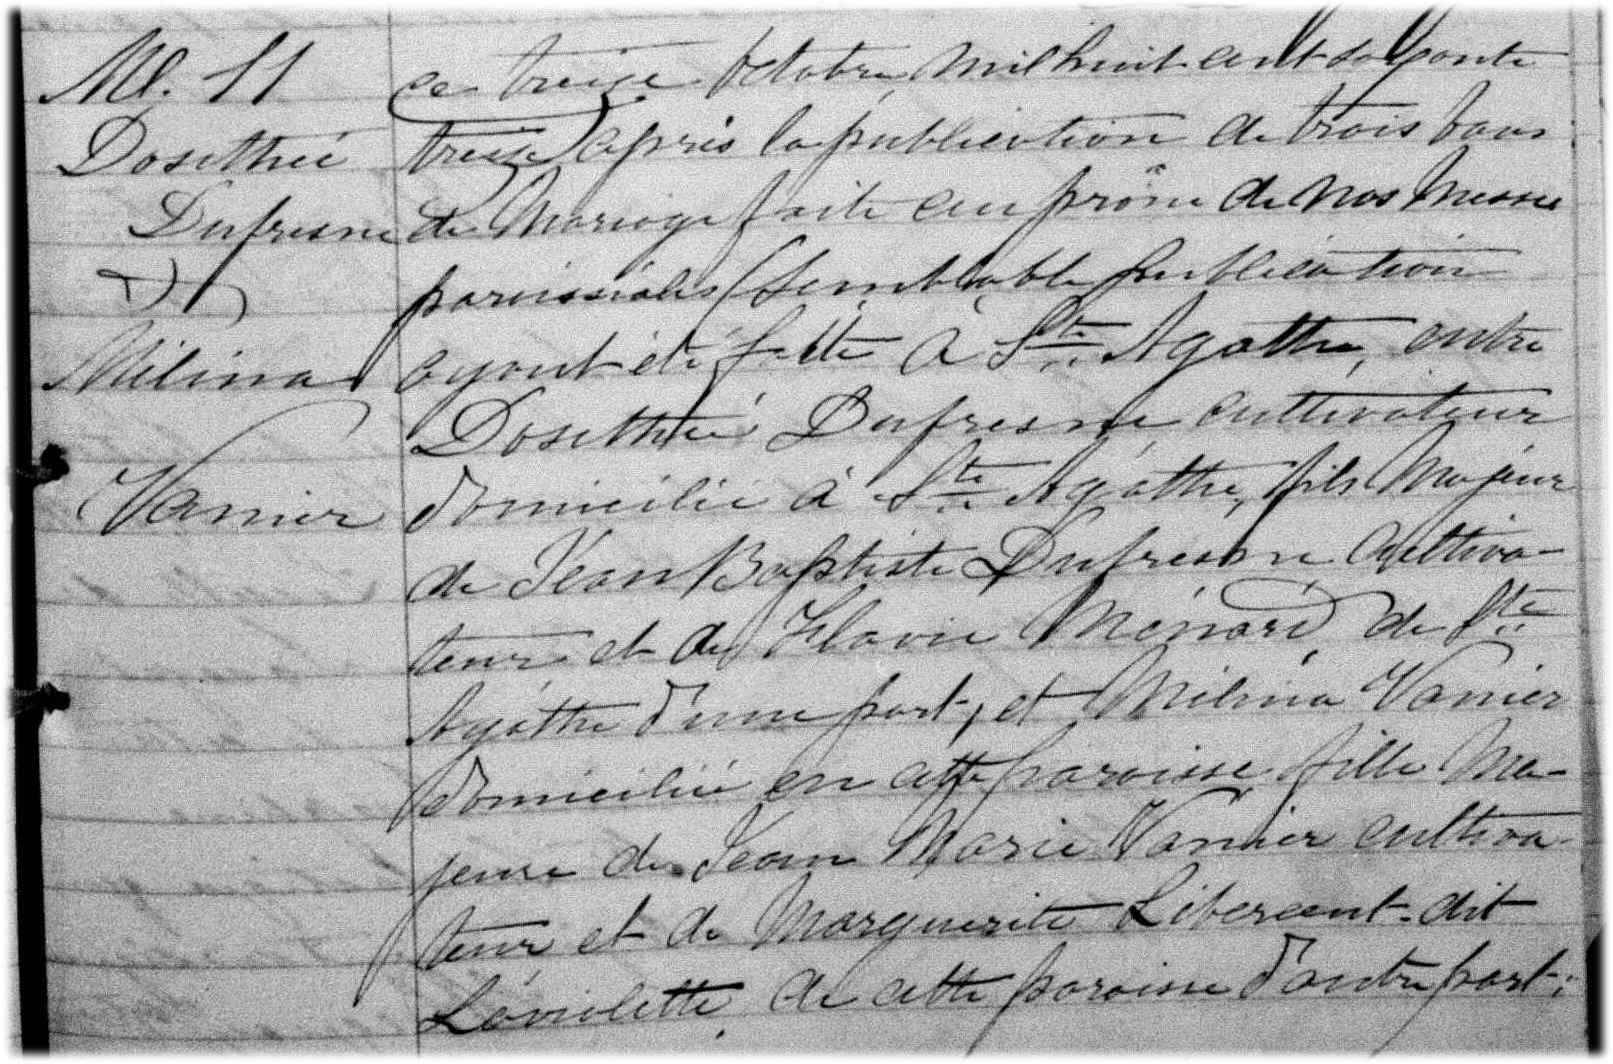 M. 11
Dosithée
Dufresne
&
Mélina
Vanier
ce treize Octobre, mil huit cent soixante
treize, après la publication de trois bans
de Mariage faite au prône de nos Messes
paroissiales (semblable publication
ayant été faite à Ste Agathe, entre
Dosithée Dufresne cultivateur
domicilié à Ste Agathe, fils Majeur
de Jean Baptiste Dufresne cultiva-
teur et de Flavie Ménard, de Ste
Agathe d'une part, et Mélina Vanier
domiciliée en cette paroisse fille Ma-
jeure de Jean Marie Vanier cultiva-
teur et de Marguerite Libersent-dit
Laviolette, de cette paroisse d'autre part;